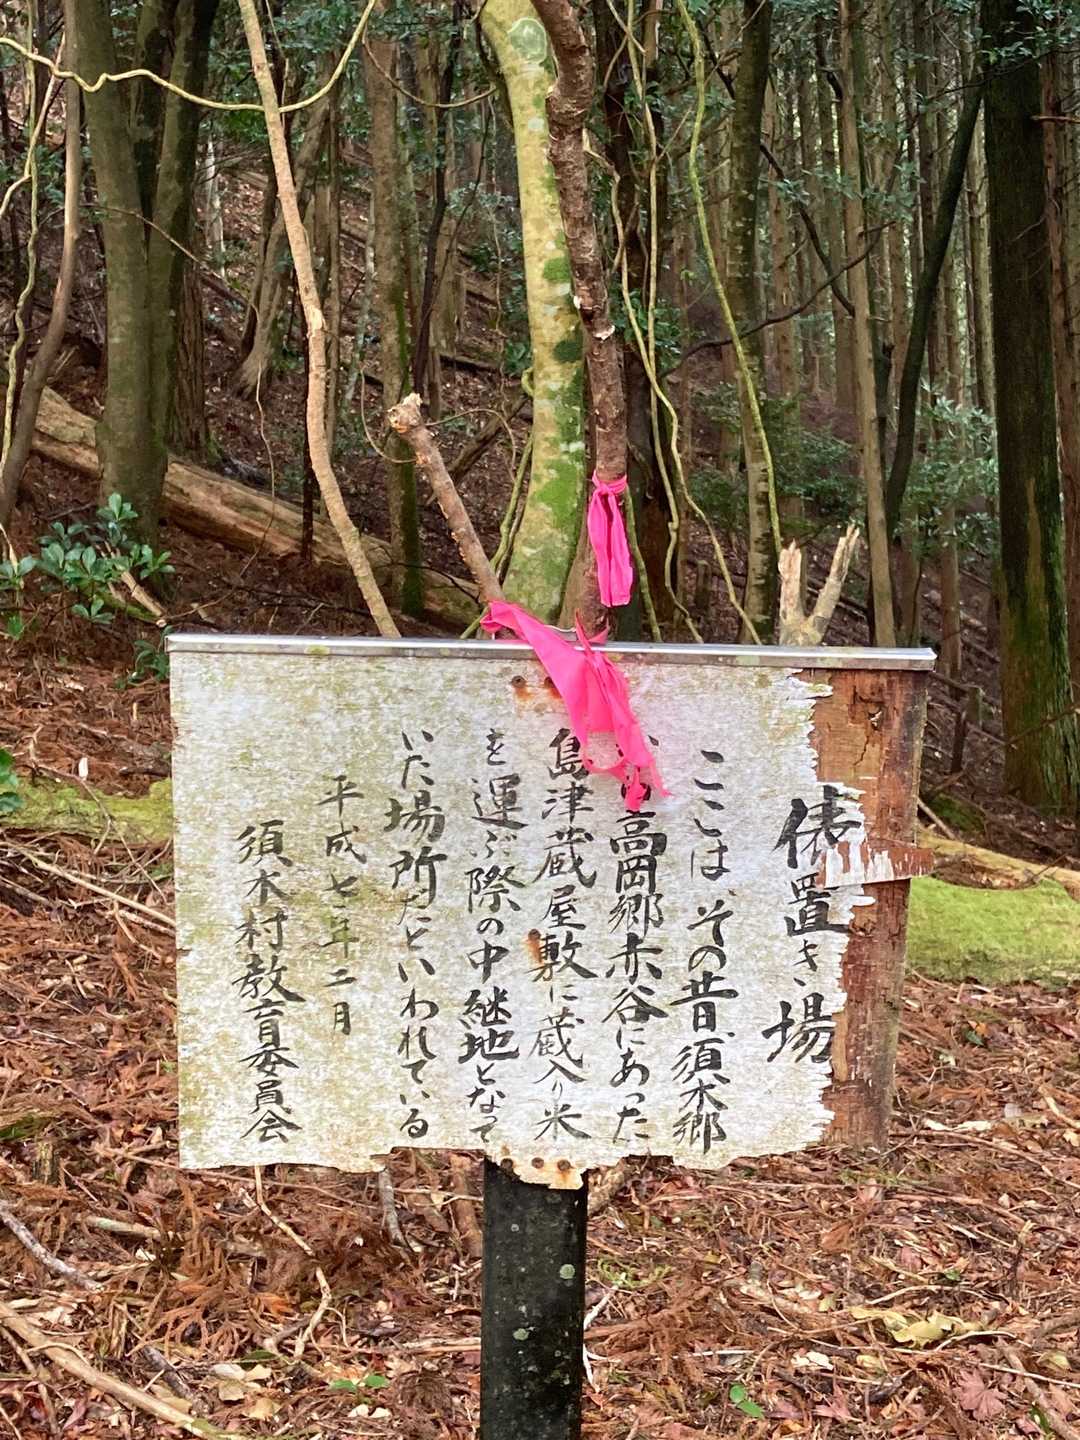 俵置き場
ここは、その昔、須木郷
高岡郷赤谷にあった
島津蔵屋敷に蔵入り米
を運ぶ際の中継地となって
いた場所だといわれている
平成七年二月
須木村教育委員会